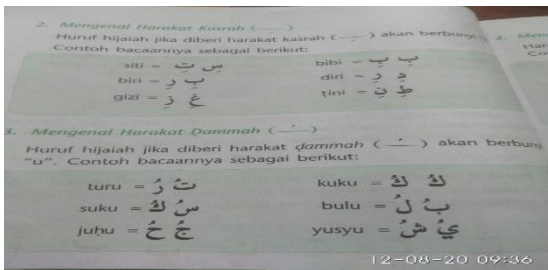 2. Mengenal Harakat Kasrah ( ِ )
Huruf hijaiah jika diberi harakat kasrah ( ِ ) akan berbunyi
Contoh bacaannya sebagai berikut:
siti = سِ تِ bibi = بِ بِ
biri = بِ رِ diri = دِ رِ
gizi = غِ زِ ṭini = طِ نِ
3. Mengenal Harakat Ḍammah ( ُ )
Huruf hijaiah jika diberi harakat ḍammah ( ُ ) akan berbuny
"u". Contoh bacaannya sebagai berikut:
turu = تُ رُ kuku = كُ كُ
suku = سُ كُ bulu = بُ لُ
juḥu = جُ حُ yusyu = يُ شُ
4. Men
Har
Co
12-08-20 09:36